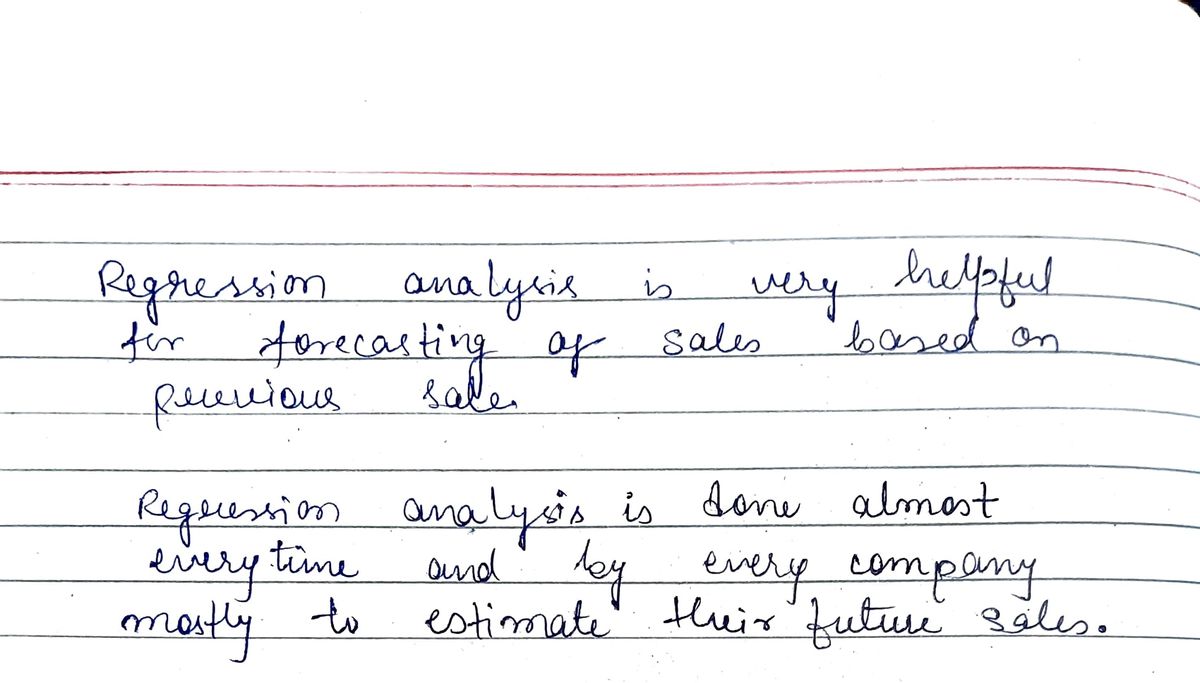 Regression analysis is very helpful
for forecasting of sales based on
previous sale.
Regression analysis is done almost
everytime and by every company
mostly to estimate their future sales.